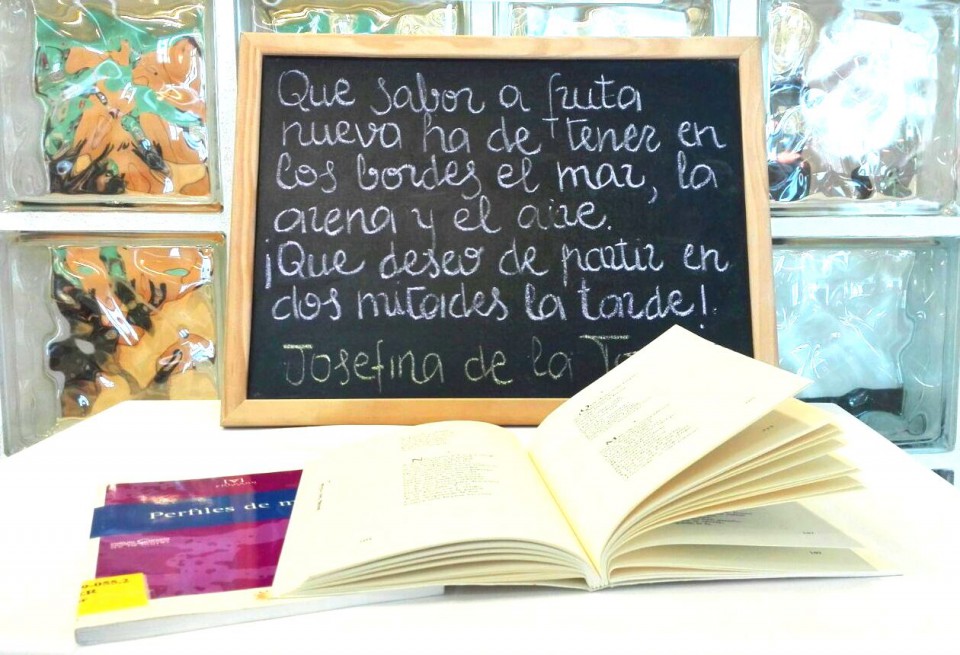 Que sabor a fruta
nueva ha de tener en
los bordes el mar, la
arena y el aire.
¡Que deseo de partir en
dos mitades la tarde!
Josefina de la
Perfiles de